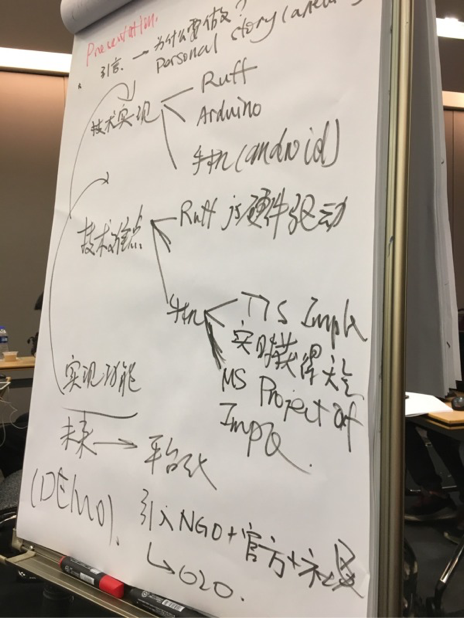 Presentation.
引言. → 为什么要做?
Personal story
技术实现
Ruff
Arduino
手机 (android)
技术难点
Ruff js 硬件驱动
手机
TTS Impl
实时获得
MS Project of
实现功能
未来 → 平台化
(DEMO).
引入NGO+官方+社区
↳ O2O.